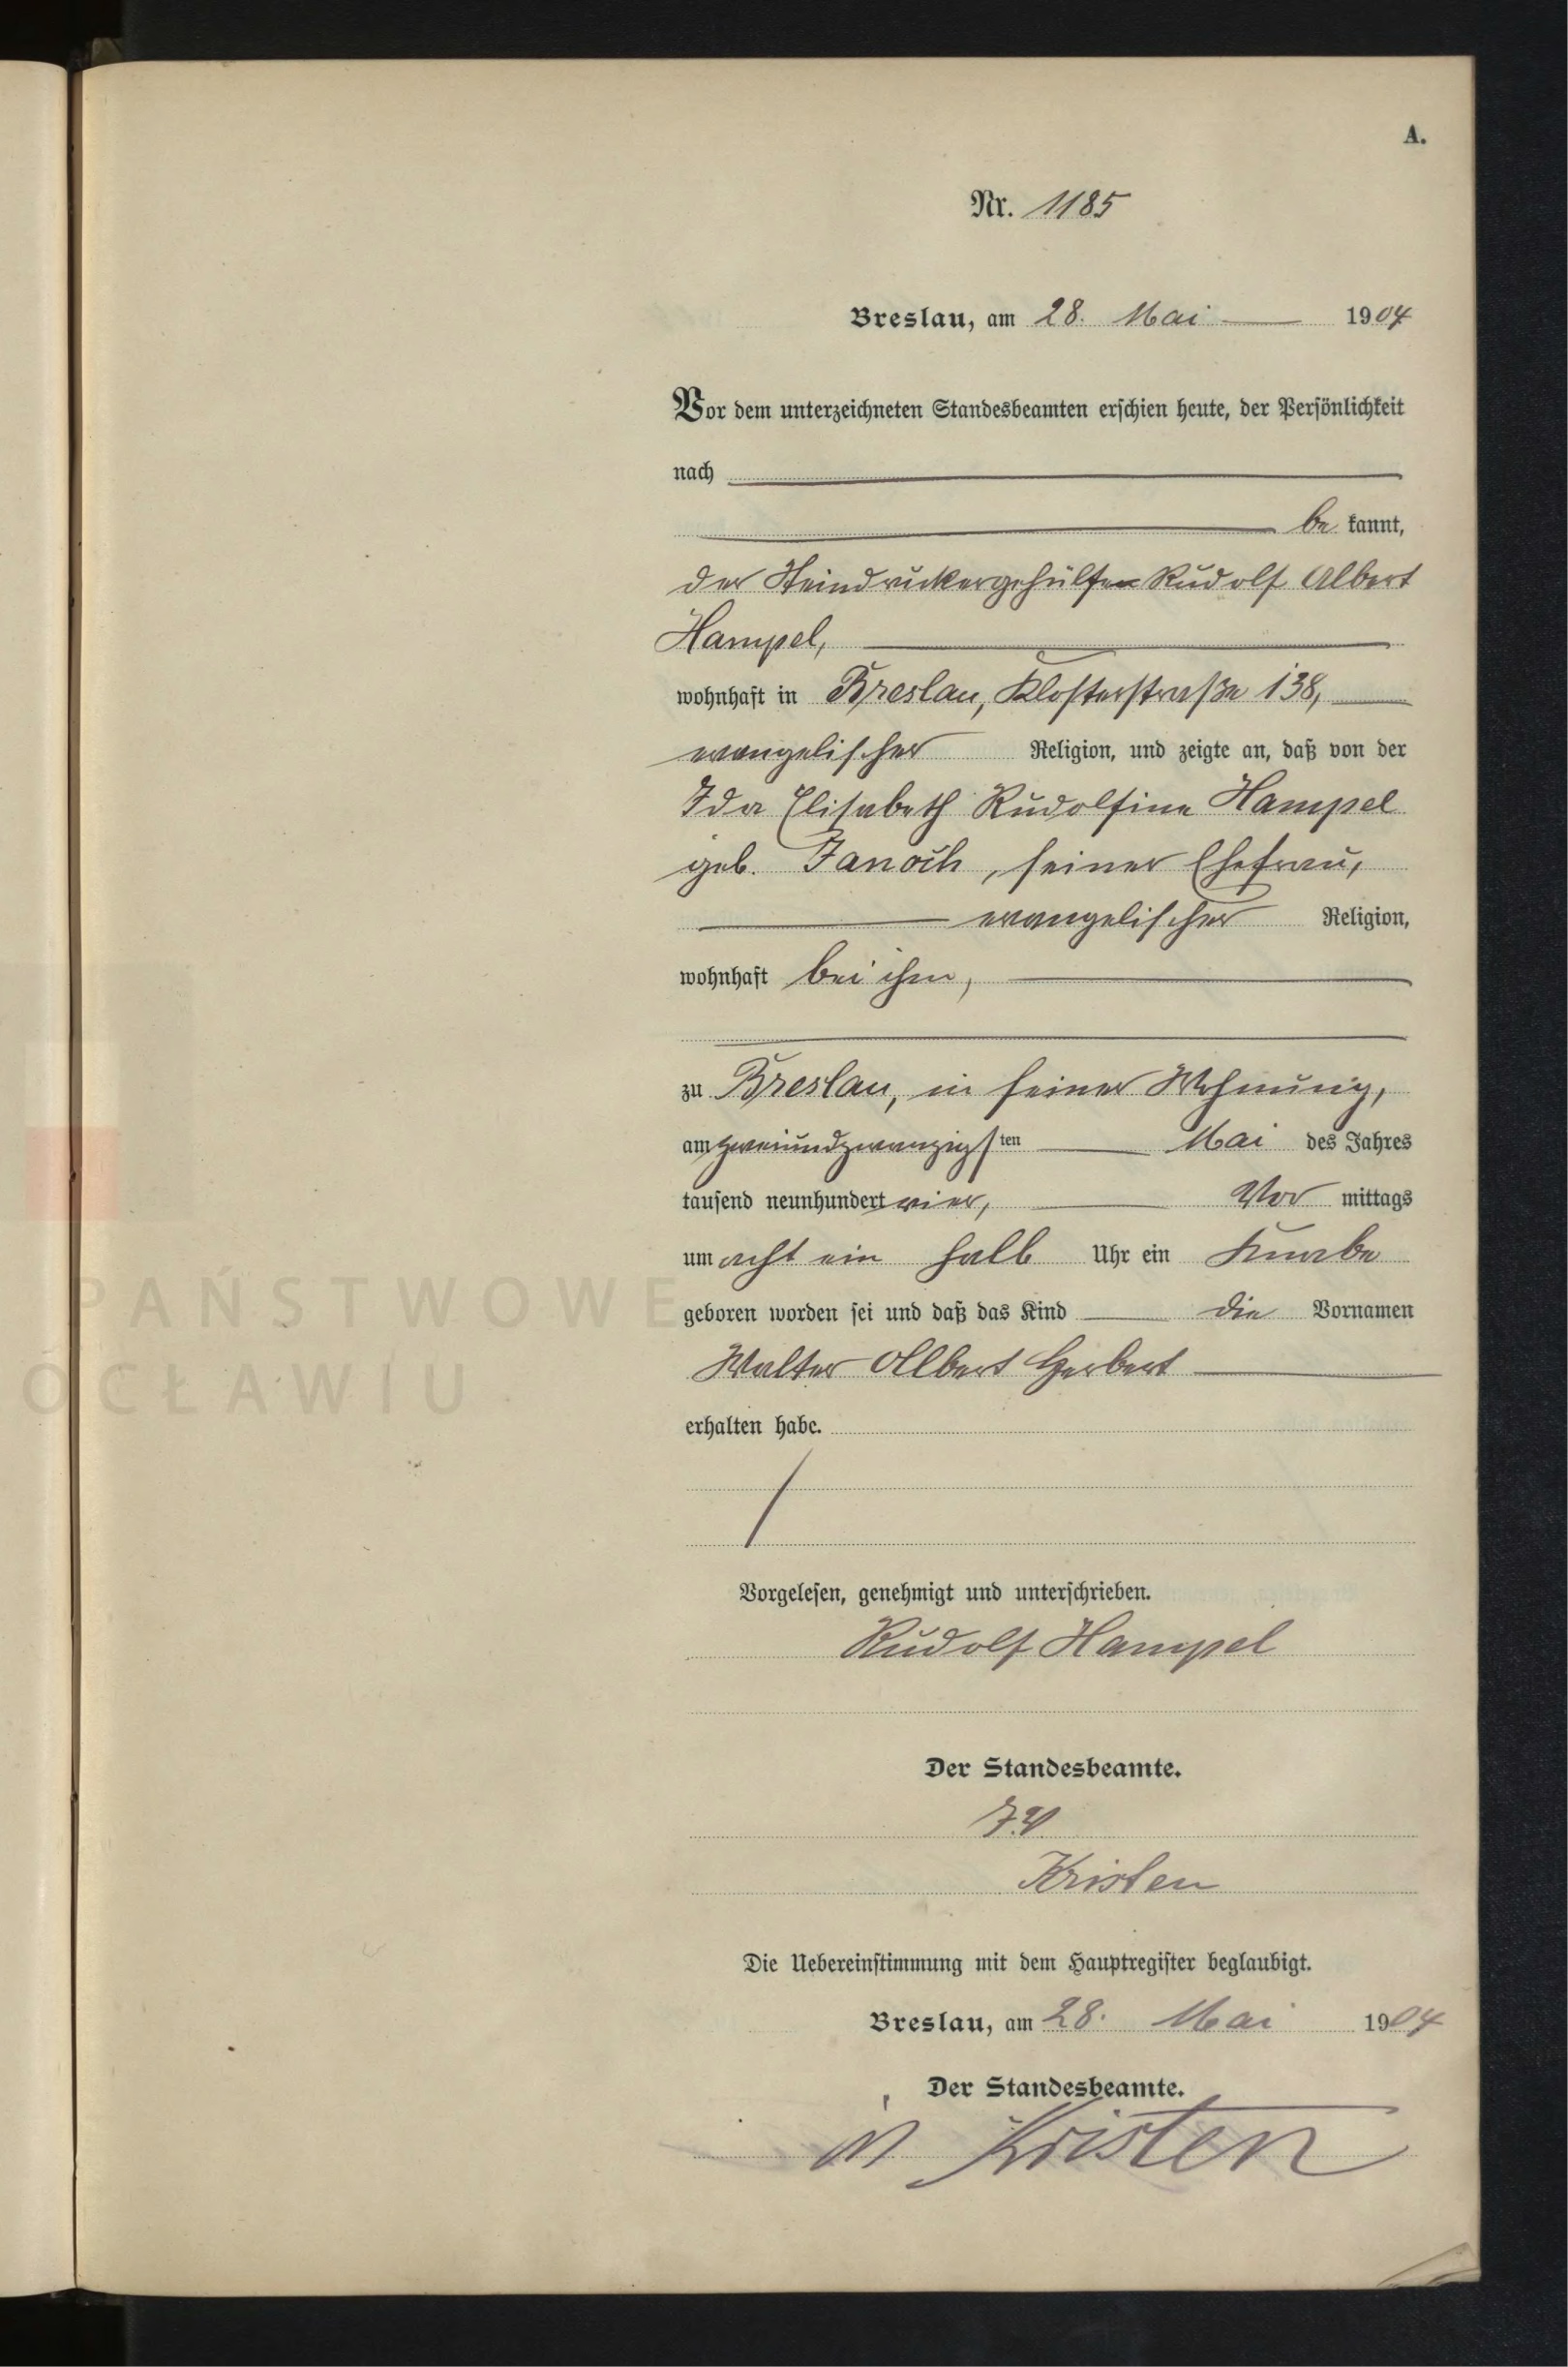 A.
Nr. 1185
Breslau, am 28. Mai 1904
Vor dem unterzeichneten Standesbeamten erschien heute, der Persönlichkeit
nach
be kannt,
der Steindruckergehülfe Rudolf Albert
Hampel,
wohnhaft in Breslau, Klosterstraße 138,
evangelischer Religion, und zeigte an, daß von der
Ida Elisabeth Rudolfine Hampel
geb. Janoch, seiner Ehefrau,
evangelischer Religion,
wohnhaft bei ihm,
zu Breslau, in seiner Wohnung,
am zweiundzwanzigsten Mai des Jahres
tausend neunhundert vier, Vor mittags
um acht ein halb Uhr ein Knabe
geboren worden sei und daß das Kind die Vornamen
PAŃSTWOWE
Walter Albert Herbert
OCŁAWIU
erhalten habe.
Vorgelesen, genehmigt und unterschrieben.
Rudolf Hampel
Der Standesbeamte.
J.V.
Kristen
Die Uebereinstimmung mit dem Hauptregister beglaubigt.
Breslau, am 28. Mai 1904
Der Standesbeamte.
Kristen